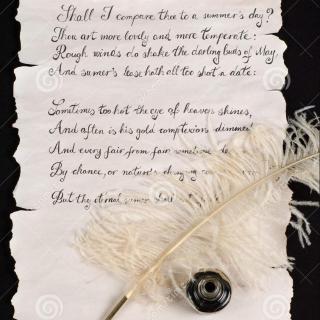 Shall I compare thee to a summer's day?
Thou art more lovely and more temperate:
Rough winds do shake the darling buds of May,
And sumer's lease hath all too shot a date:
Sometimes too hot the eye of heaven shines,
And often is his gold complexions dimmed
And every fair from fair sometime de
By chance, or nature's changing
But the eternal summer shall